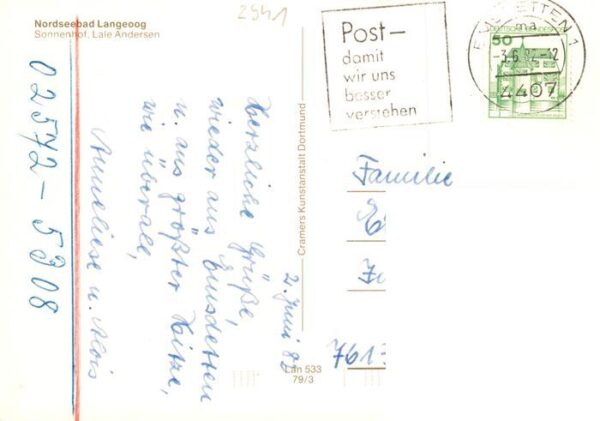 Nordseebad Langeoog
Sonnenhof, Lale Andersen
2941
Post-
damit
wir uns
besser
verstehen
EMSDETTEN 1
ma
-3.6.82-12
4407
50
02572-5308
2. Juni 82
Herzliche Grüße,
wieder aus Emsdetten
u. aus größter Hitze,
wie überall,
Anneliese u. Alois
Cramers Kunstanstalt Dortmund
Lan 533
79/3
Familie
761